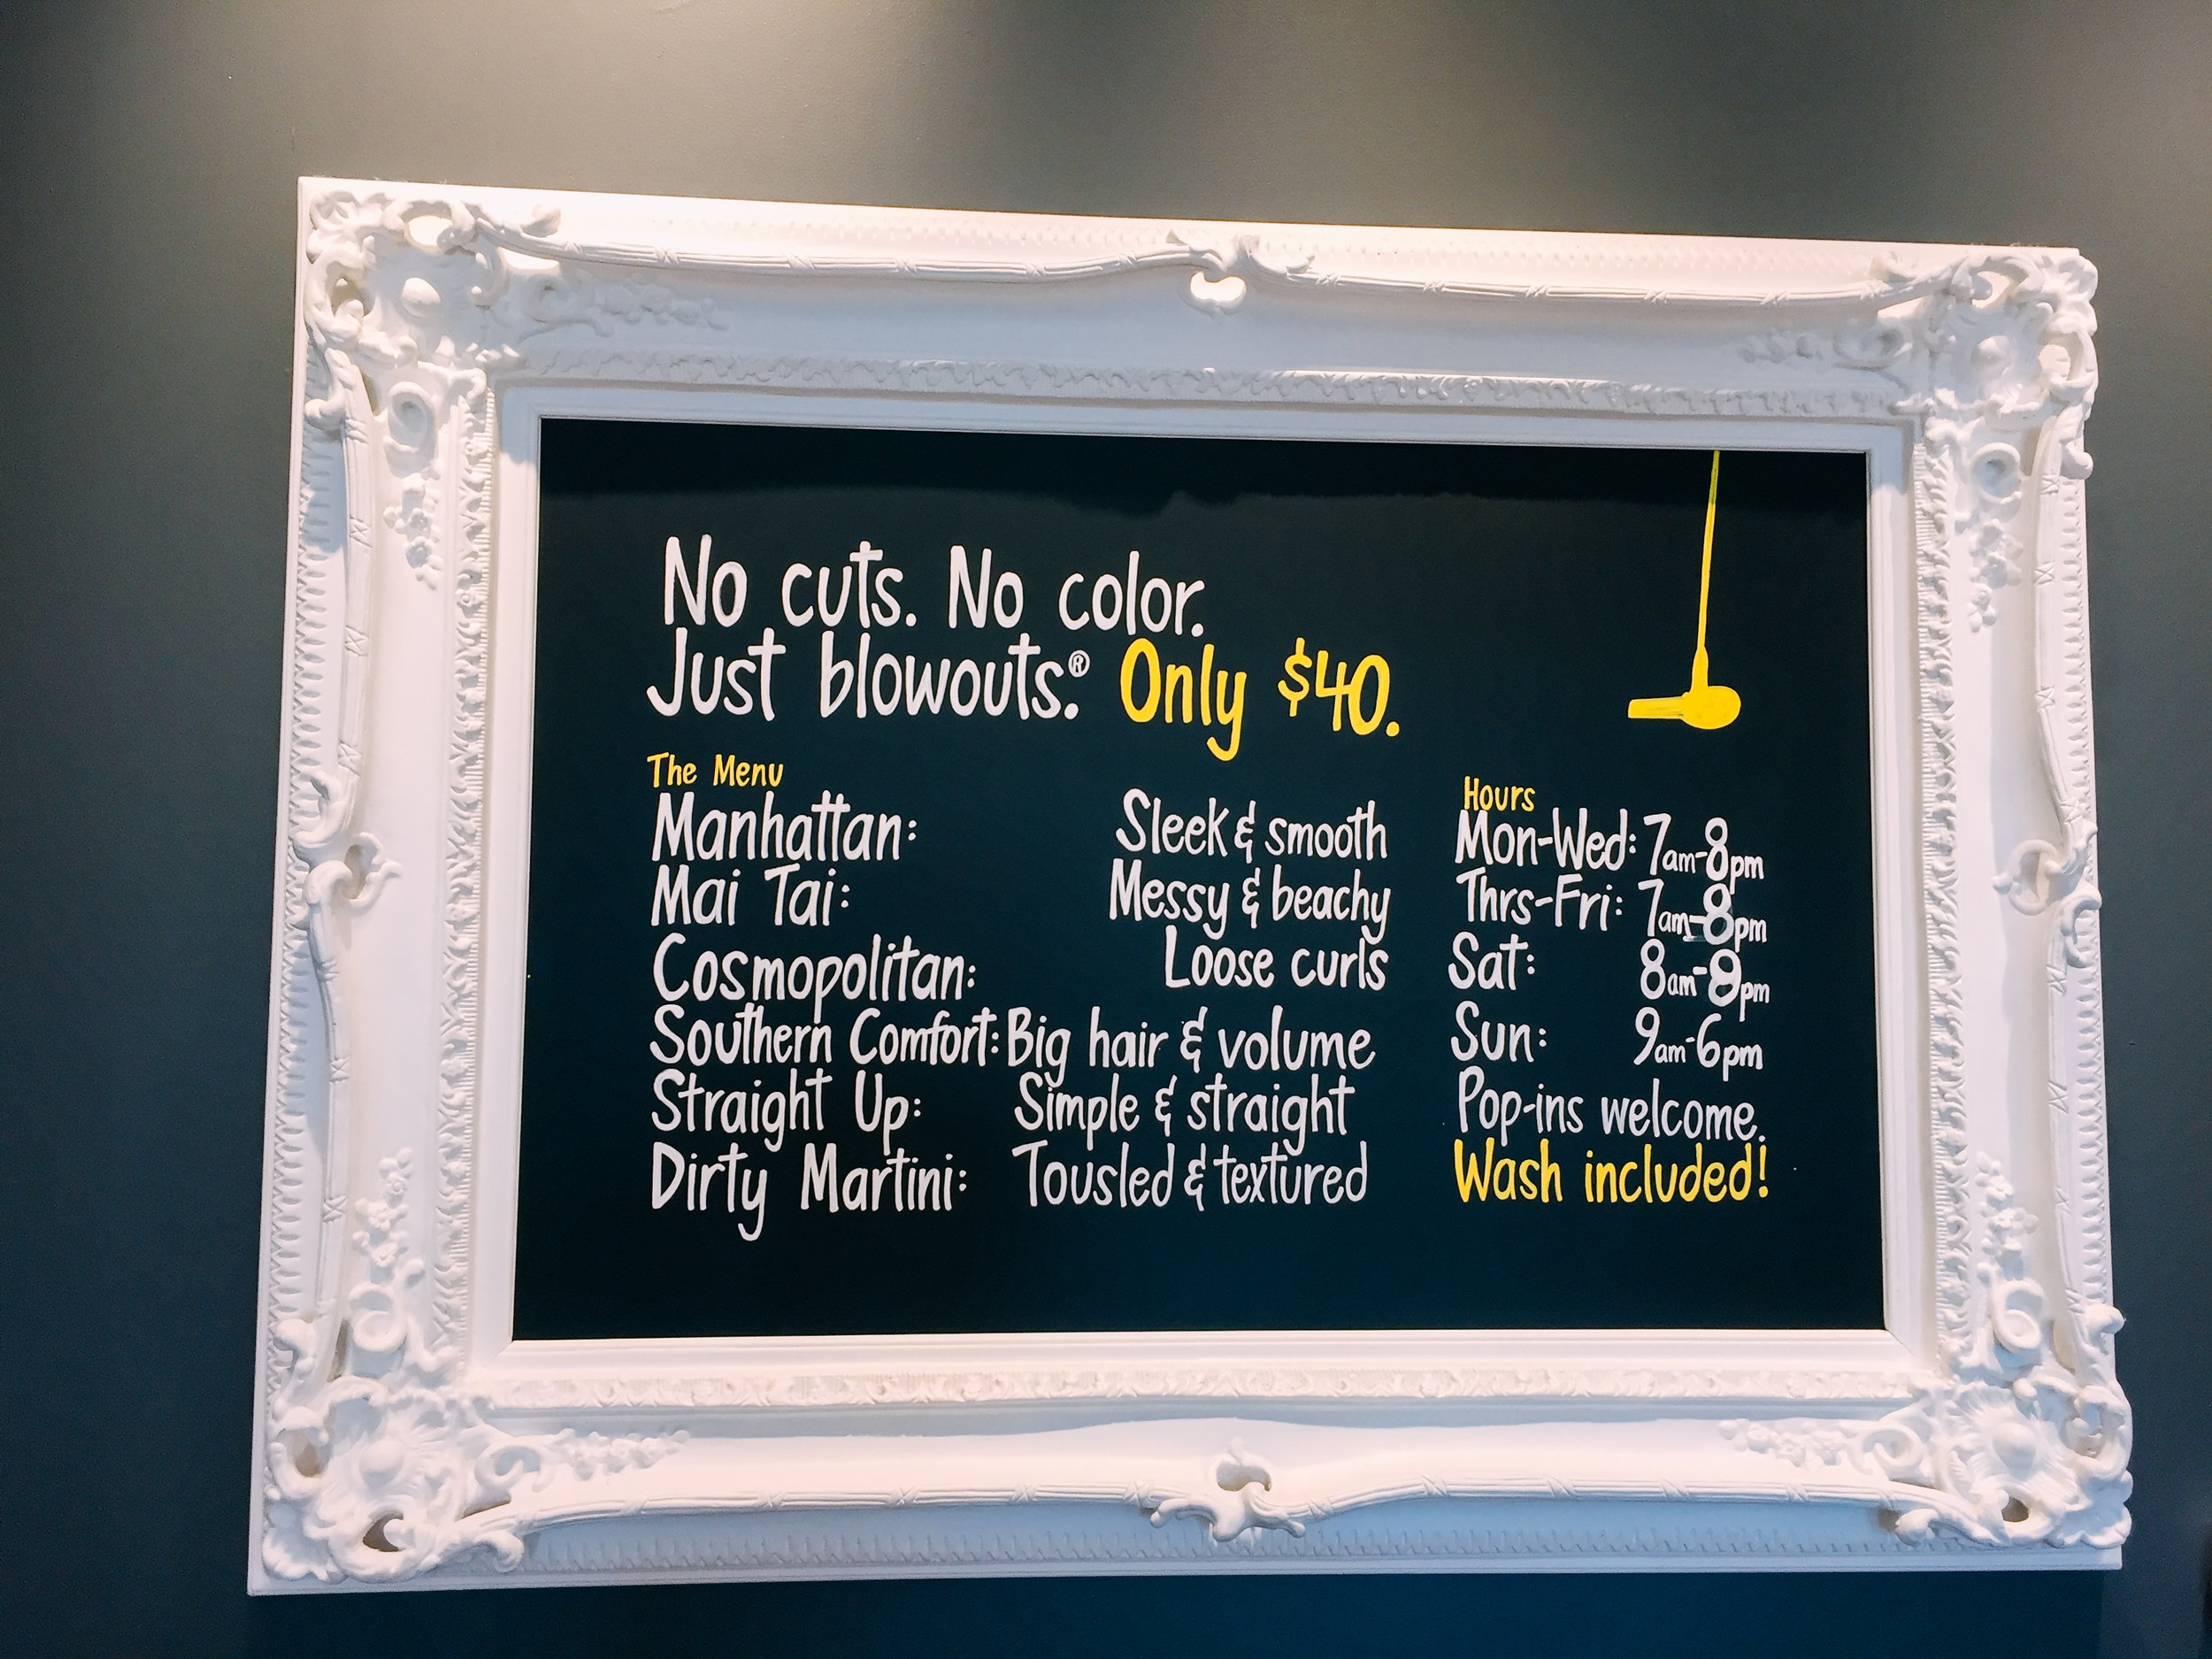 No cuts. No color.
Just blowouts.® Only $40.
The Menu
Manhattan: Sleek & smooth
Mai Tai: Messy & beachy
Cosmopolitan: Loose curls
Southern Comfort: Big hair & volume
Straight Up: Simple & straight
Dirty Martini: Tousled & textured
Hours
Mon-Wed: 7am-8pm
Thrs-Fri: 7am-8pm
Sat: 8am-8pm
Sun: 9am-6pm
Pop-ins welcome.
Wash included!